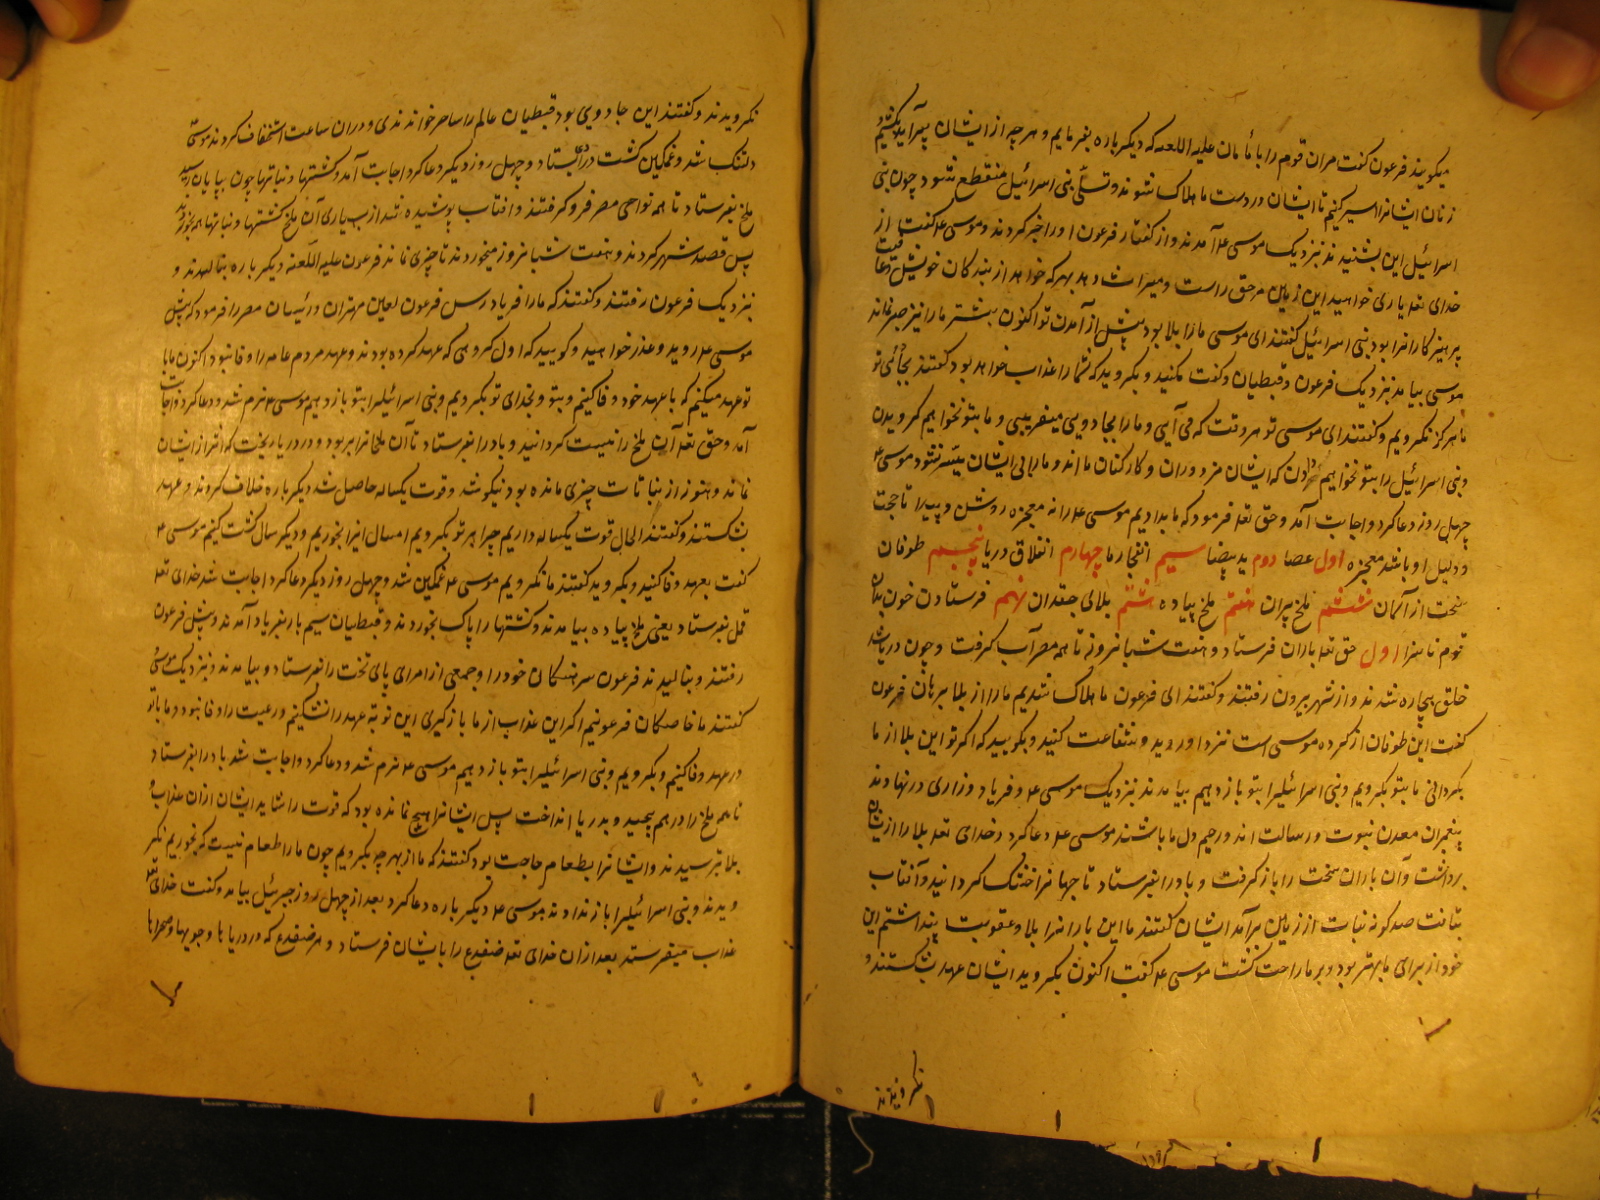 میکویند فرعون کفت مران قوم را با هامان علیه اللعنه که دیکر باره بفرمایم و هرچه از ایشان پسر آید بکشیم
زنان ایشانرا اسیر کنیم تا ایشان در دست ما هلاک شوند و نسل بنی اسرائیل منقطع شود چون بنی
اسرائیل این بشنیدند بنزدیک موسی ع آمدند و از کفتار فرعون او را خبر کردند و موسی ع کفت از
خدای تعه یاری خواهید این زمین مر حق راست و میراث دهد بهر که خواهد از بندکان خویش و عاقبت
پرهیزکارانرا بود بنی اسرائیل کفتند ای موسی ما را بلا بود پیش از آمدن تو اکنون بیشتر ما را نیز صبر نماند
موسی بیامد بنزدیک فرعون و قبطیان و کفت مکنید و بکروید که شما را عذاب خواهد بود کفتند بجائی تو
ما هرکز نکرویم و کفتند ای موسی تو هر وقت که می آیی و ما را بجادویی میفریبی و ما بتو نخواهیم کرویدن
و بنی اسرائیل را بتو نخواهیم دادن که ایشان مزدوران و کارکنان ما اند و ما را بی ایشان میسر نشود موسی ع
چهل روز دعا کرد و اجابت آمد و حق تعه فرمود که ما بدادیم موسی ع را نه معجزه روشن و پیدا تا حجت
و دلیل او باشد معجزه اول عصا دوم ید بیضا سیم انفجار ما چهارم انفلاق دریا پنجم طوفان
سخت از آسمان ششم ملخ پران هفتم ملخ پیاده هشتم بلای جغدان نهم فرستادن خون بدان
قوم نابنرا اول حق تعه باران فرستاد و هفت شبانروز تا همه مصر آب کرفت و چون دریا شد
خلق بیچاره شدند و از شهر بیرون رفتند و کفتند ای فرعون ما هلاک شدیم ما را از بلا برهان فرعون
کفت این طوفان از کرده موسی است نزد او روید و شفاعت کنید و بکویید که اکر تو این بلا از ما
بکردانی ما بتو بکرویم و بنی اسرائیلرا بتو باز دهیم بیامدند بنزدیک موسی ع و فریاد و زاری در نهادند
پیغمبران معدن نبوت و رسالت اند و رحیم دل ما باشند موسی ع دعا کرد و خدای تعه بلا را از ایشان
برداشت و آن باران سخت را باز کرفت و باد را بفرستاد تا جهانرا خشک کردانید و آفتاب
بتافت صد کونه نبات از زمین برآمد ایشان کفتند ما این بارانرا بلا و عقوبت پنداشتیم این
خود از برای ما بهتر بود و بر ما راحت کشت موسی ع کفت اکنون بکروید ایشان عهد بشکستند و
نکرویدند
نکرویدند و کفتند این جادویی بود قبطیان عالم را ساحر خواندندی و در آن ساعت استخفاف کردند موسی
دلتنک شد و غمکین کشت در بایستاد و چهل روز دیکر دعا کرد اجابت آمد و کشتها و نباتها چون بپایان رسید
ملخ بفرستاد تا همه نواحی مصر فرو کرفتند و آفتاب پوشیده شد از بسیاری آن ملخ کشتها و نباتها همه بخوردند
پس قصد شهر کردند و هفت شبانروز میخوردند تا چیزی نماند فرعون علیه اللعنه دیکر باره بنالیدند و
بنزدیک فرعون رفتند و کفتند که ما را فریاد رس فرعون لعین مهتران و رئیسان مصر را فرمود که پیش
موسی ع روید و عذر خواهید و کویید که اول کروهی که عهد کرده بودند و عهد مردم عامه را وفا نبود اکنون ما با
تو عهد میکنیم که با عهد خود وفا کنیم و بتو و بخدای تو بکرویم و بنی اسرائیلرا بتو باز دهیم موسی ع نرم شد و دعا کرد و اجابت
آمد و حق تعه آن ملخ را نیست کردانید و باد را بفرستاد تا آن ملخانرا بربود و در دریا ریخت که اثر از ایشان
نماند و هنوز از نباتات چیزی مانده بود نیکو شد و قوت یکساله حاصل شد دیکر باره خلاف کردند و عهد
بشکستند و کفتند الحال قوت یکساله داریم چرا بر تو بکرویم امسال اینرا بخوریم و دیکر سال کشت کنیم موسی ع
کفت بعهد وفا کنید و بکروید کفتند ما نکرویم موسی ع غمکین شد و چهل روز دیکر دعا کرد اجابت شد خدای تعه
قمل بفرستاد یعنی ملخ پیاده بیامدند و کشتها را پاک بخوردند و قبطیان سیم بار بفریاد آمدند و پیش فرعون
رفتند و بنالیدند فرعون سرهنکان خود را و جمعی از امرای پای تخت را بفرستاد و بیامدند و بنزدیک موسی
کفتند ما خاصکان فرعونیم اکر این عذاب از ما باز کیری این نوبه عهد را نشکنیم و رعیت را وفا نبود و ما با تو
در عهد وفا کنیم و بکرویم و بنی اسرائیلرا بتو باز دهیم موسی ع نرم شد و دعا کرد و اجابت شد باد را بفرستاد
تا همه ملخ را در هم پیچید و بدریا انداخت پس ایشانرا هیچ نمانده بود که قوت را شاید ایشان از آن عذاب و
بلا بترسیدند و ایشانرا بطعام حاجت بود کفتند که ما از بهر چه بکرویم چون ما را طعام نیست که بخوریم نکر
ویدند و بنی اسرائیلرا باز ندادند موسی ع دیکر باره دعا کرد بعد از چهل روز جبرئیل بیامد و کفت خدای تعه
عذاب میفرستد بعد از آن خدای تعه ضفدع را بایشان فرستاد و هر ضفدع که در دریاها و جویها و صحراها